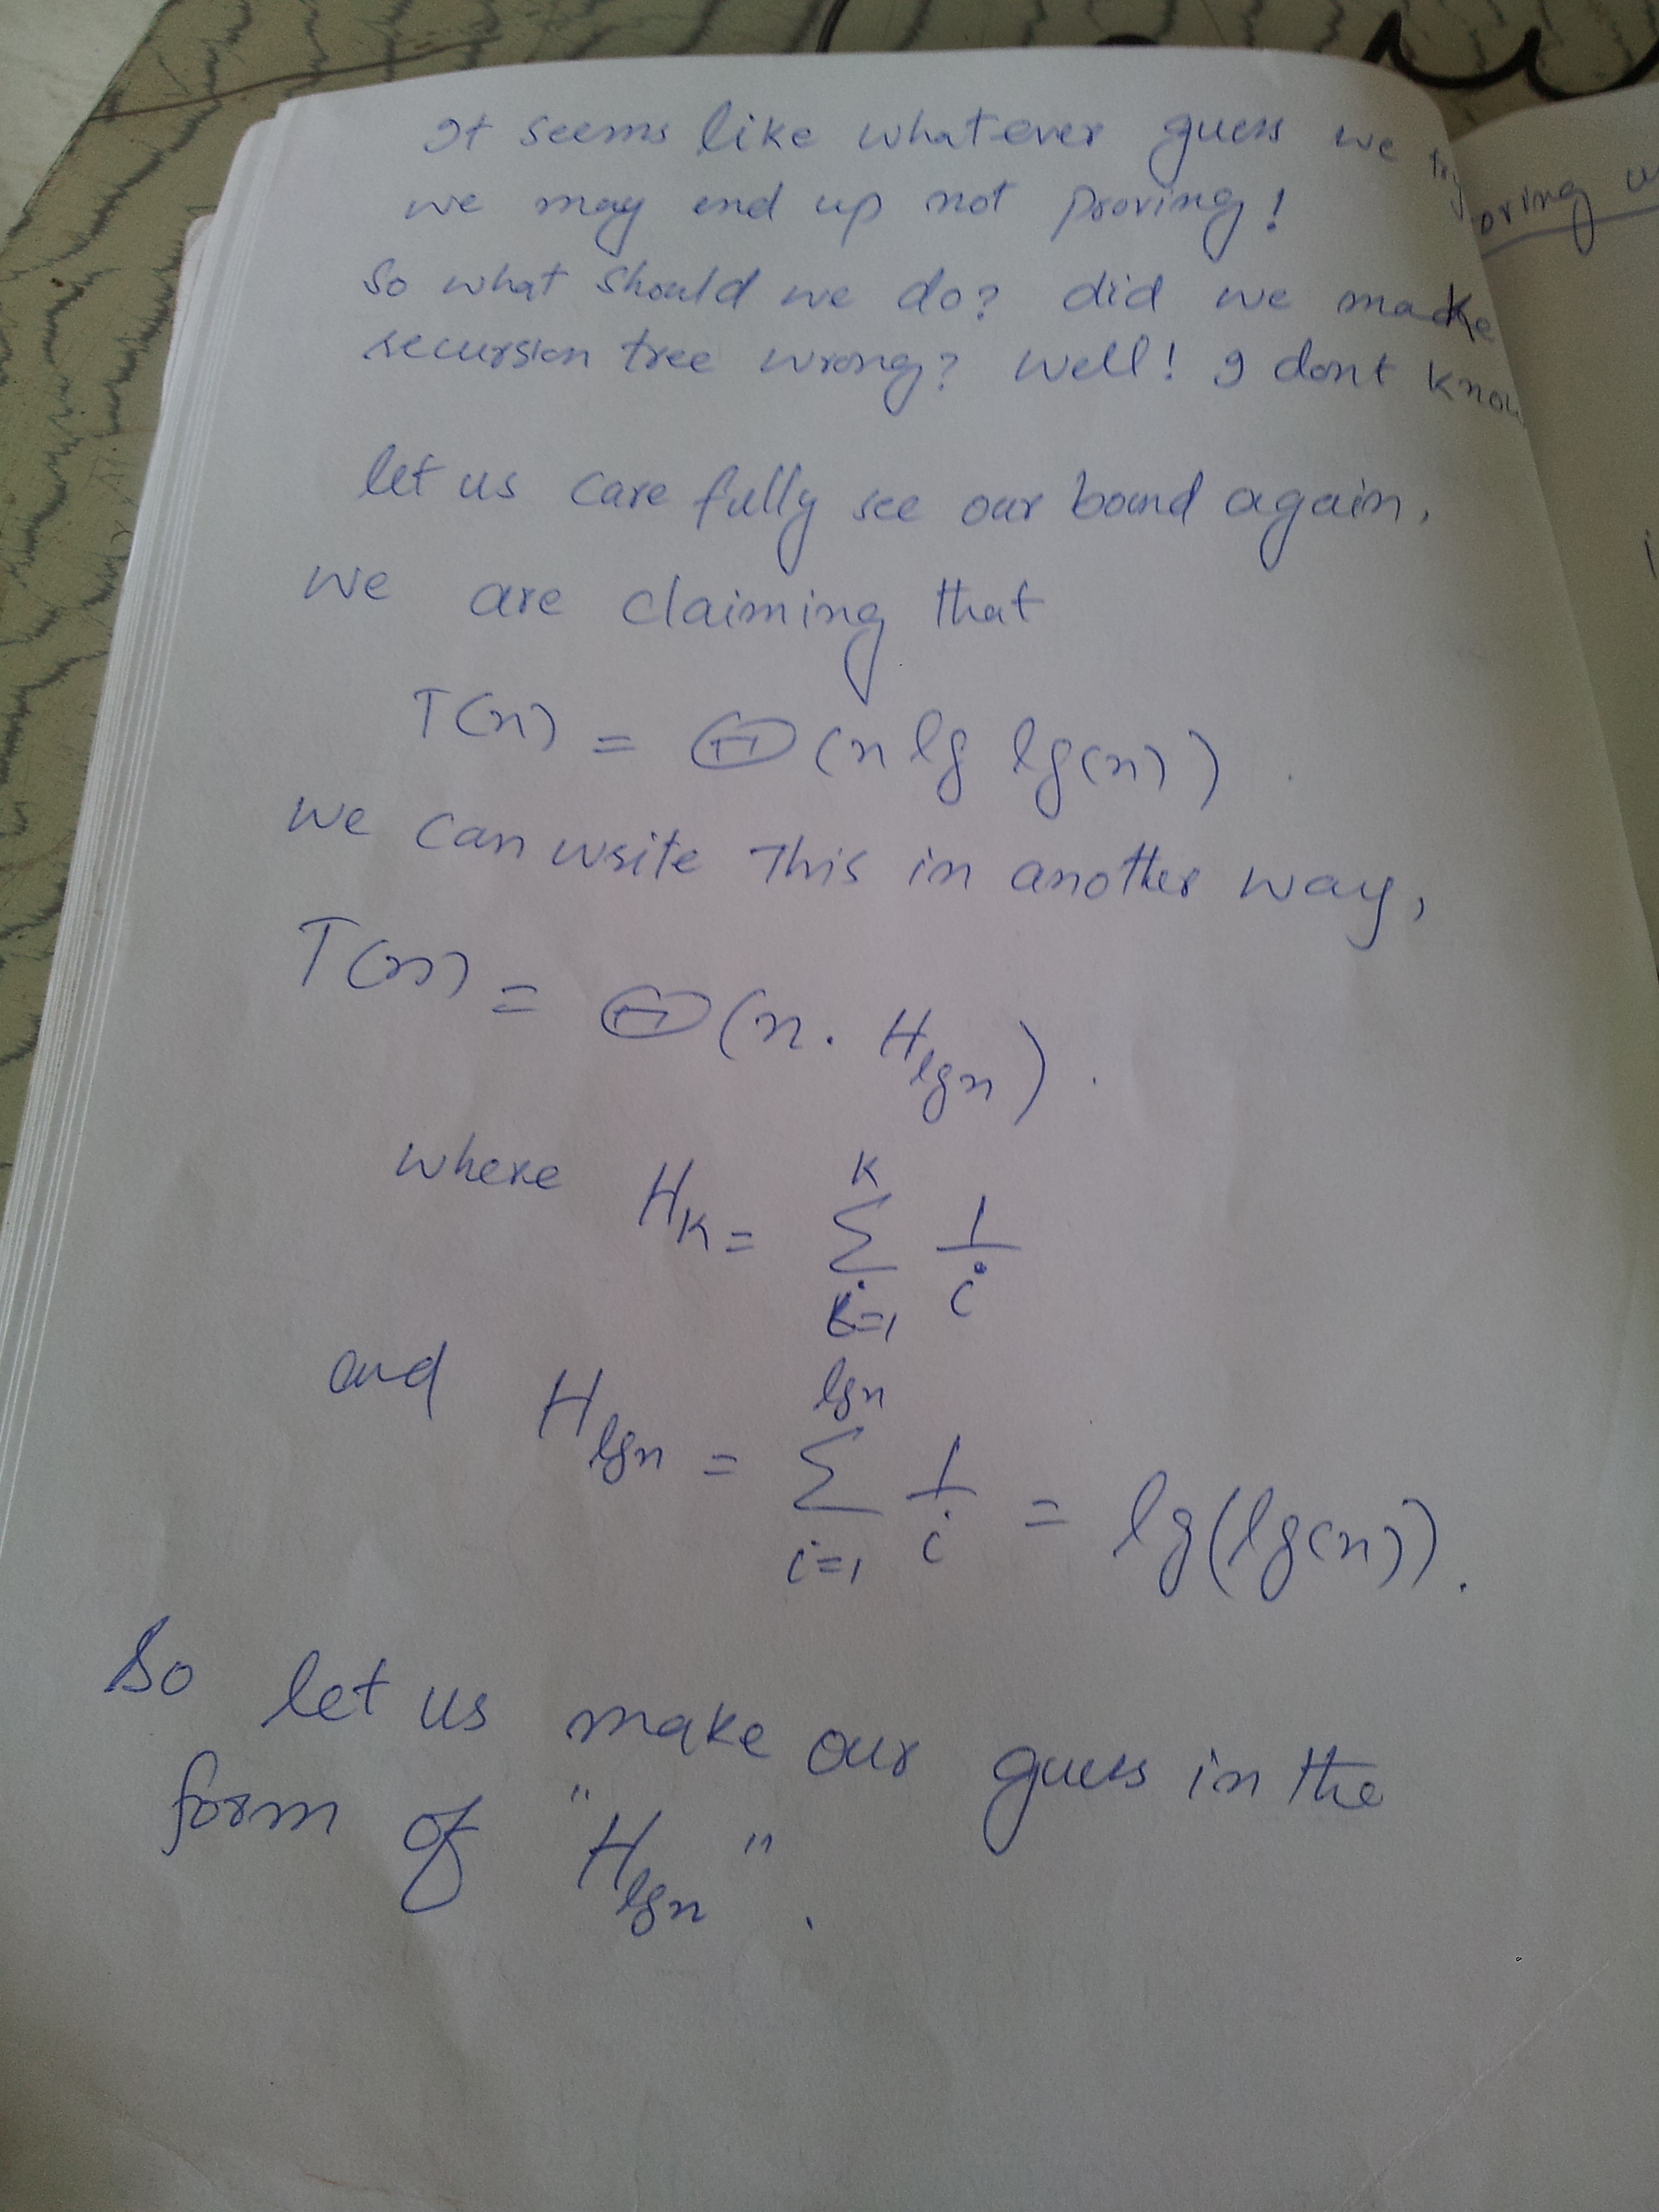 It seems like what-ever guess we try
we may end up not proving!
So what should we do? did we make
recursion tree wrong? well! I dont know
let us care fully see our bound again,
we are claiming that
T(n) = Θ(n lg lg(n))
we can write this in another way,
T(n) = Θ(n. H_lgn).
where H_k = Σ_{i=1}^{k} 1/i
and H_lgn = Σ_{i=1}^{lgn} 1/i = lg(lg(n)).
So let us make our guess in the
form of "H_lgn".